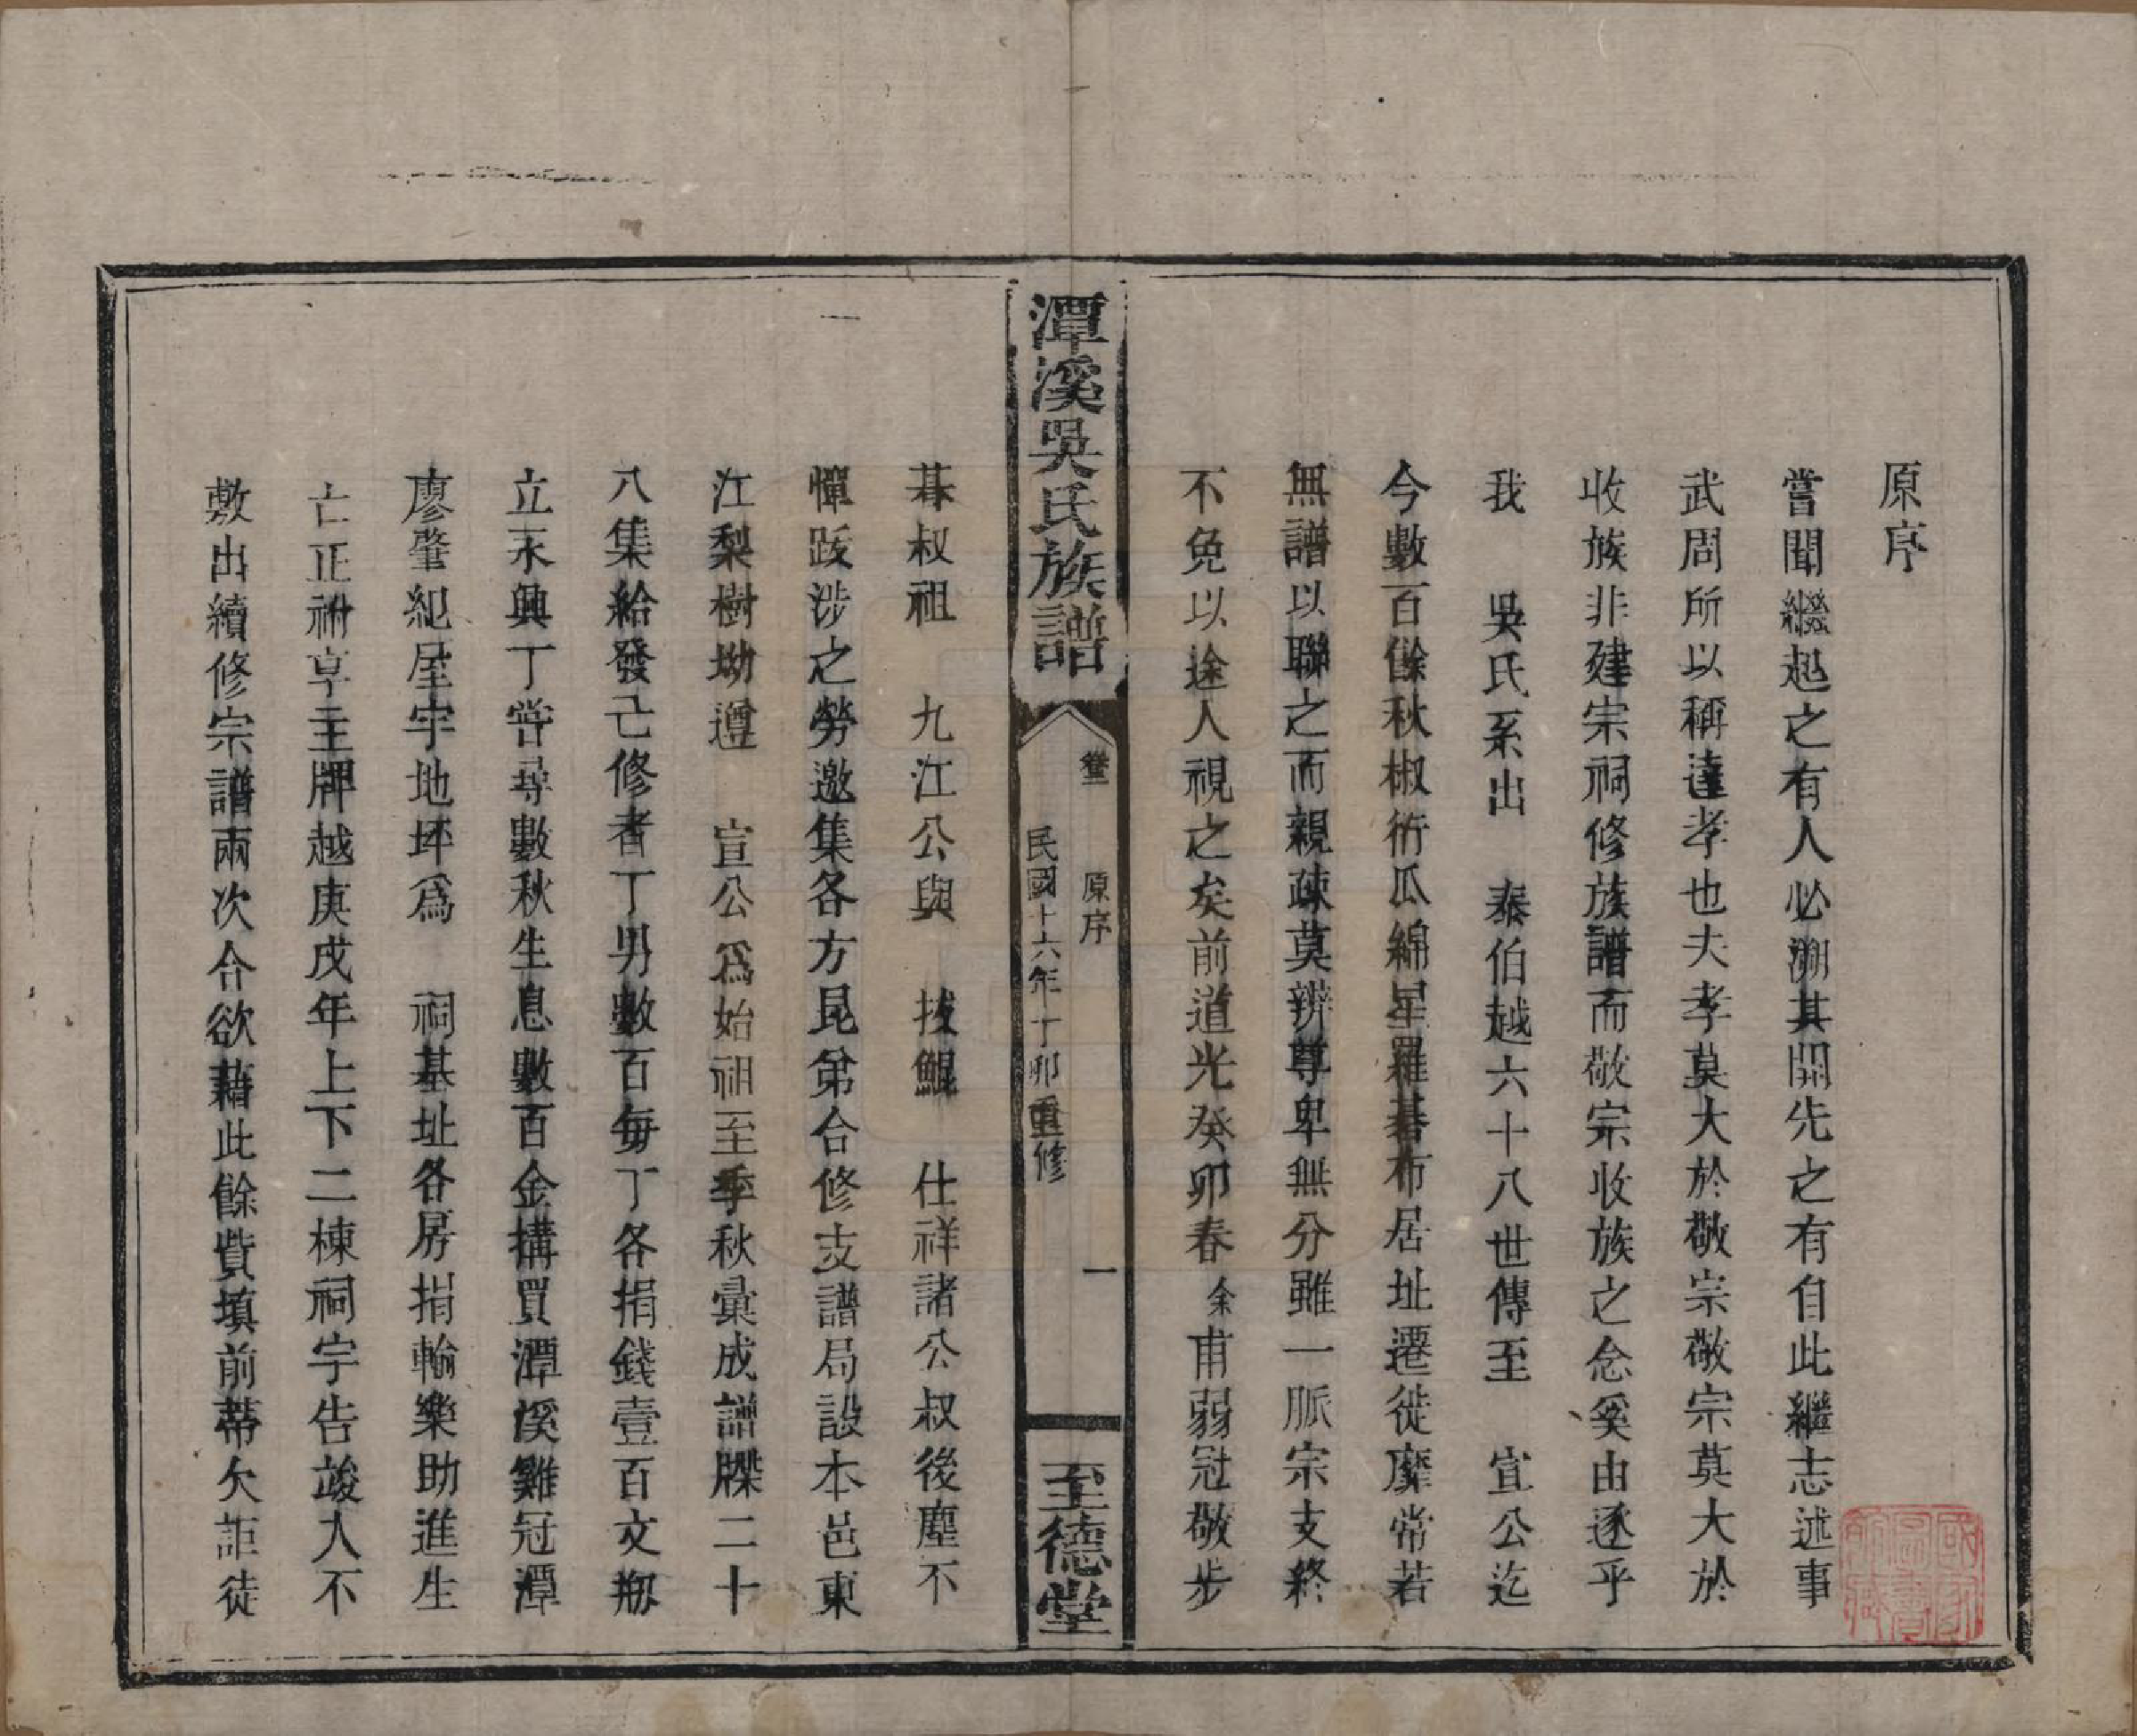 原序
嘗聞繼起之有人必溯其開先之有自此繼志述事
武周所以稱達孝也夫孝莫大於敬宗敬宗莫大於
收族非建宗祠修族譜而敬宗收族之念奚由遂乎
我 吳氏系出 泰伯越六十八世傳至 宣公迄
今數百餘秋椒衍瓜綿星羅碁布居址遷徙靡常若
無譜以聯之而親疎莫辨尊卑無分雖一脈宗支終
不免以途人視之矣前道光癸卯春余甫弱冠敬步
潭溪吳氏族譜
卷三 原序 一
民國十六年丁卯重修
至德堂
碁叔祖 九江公與 拔鯤 仕祥諸公叔後塵不
憚跋涉之勞邀集各方昆弟合修支譜局設本邑東
江梨樹坳遵 宣公為始祖至季秋彙成譜牒二十
八集給發己修者丁男數百每丁各捐錢壹百文刱
立永興丁嘗尋數秋生息數百金搆買潭溪雞冠潭
廖肇紀屋宇地坪為 祠基址各房捐輸樂助進生
亡正祔享主牌越庚戌年上下二棟祠宇告竣人不
敷出續修宗譜兩次合欲藉此餘貲填前蒂欠詎徒
國家圖書館藏